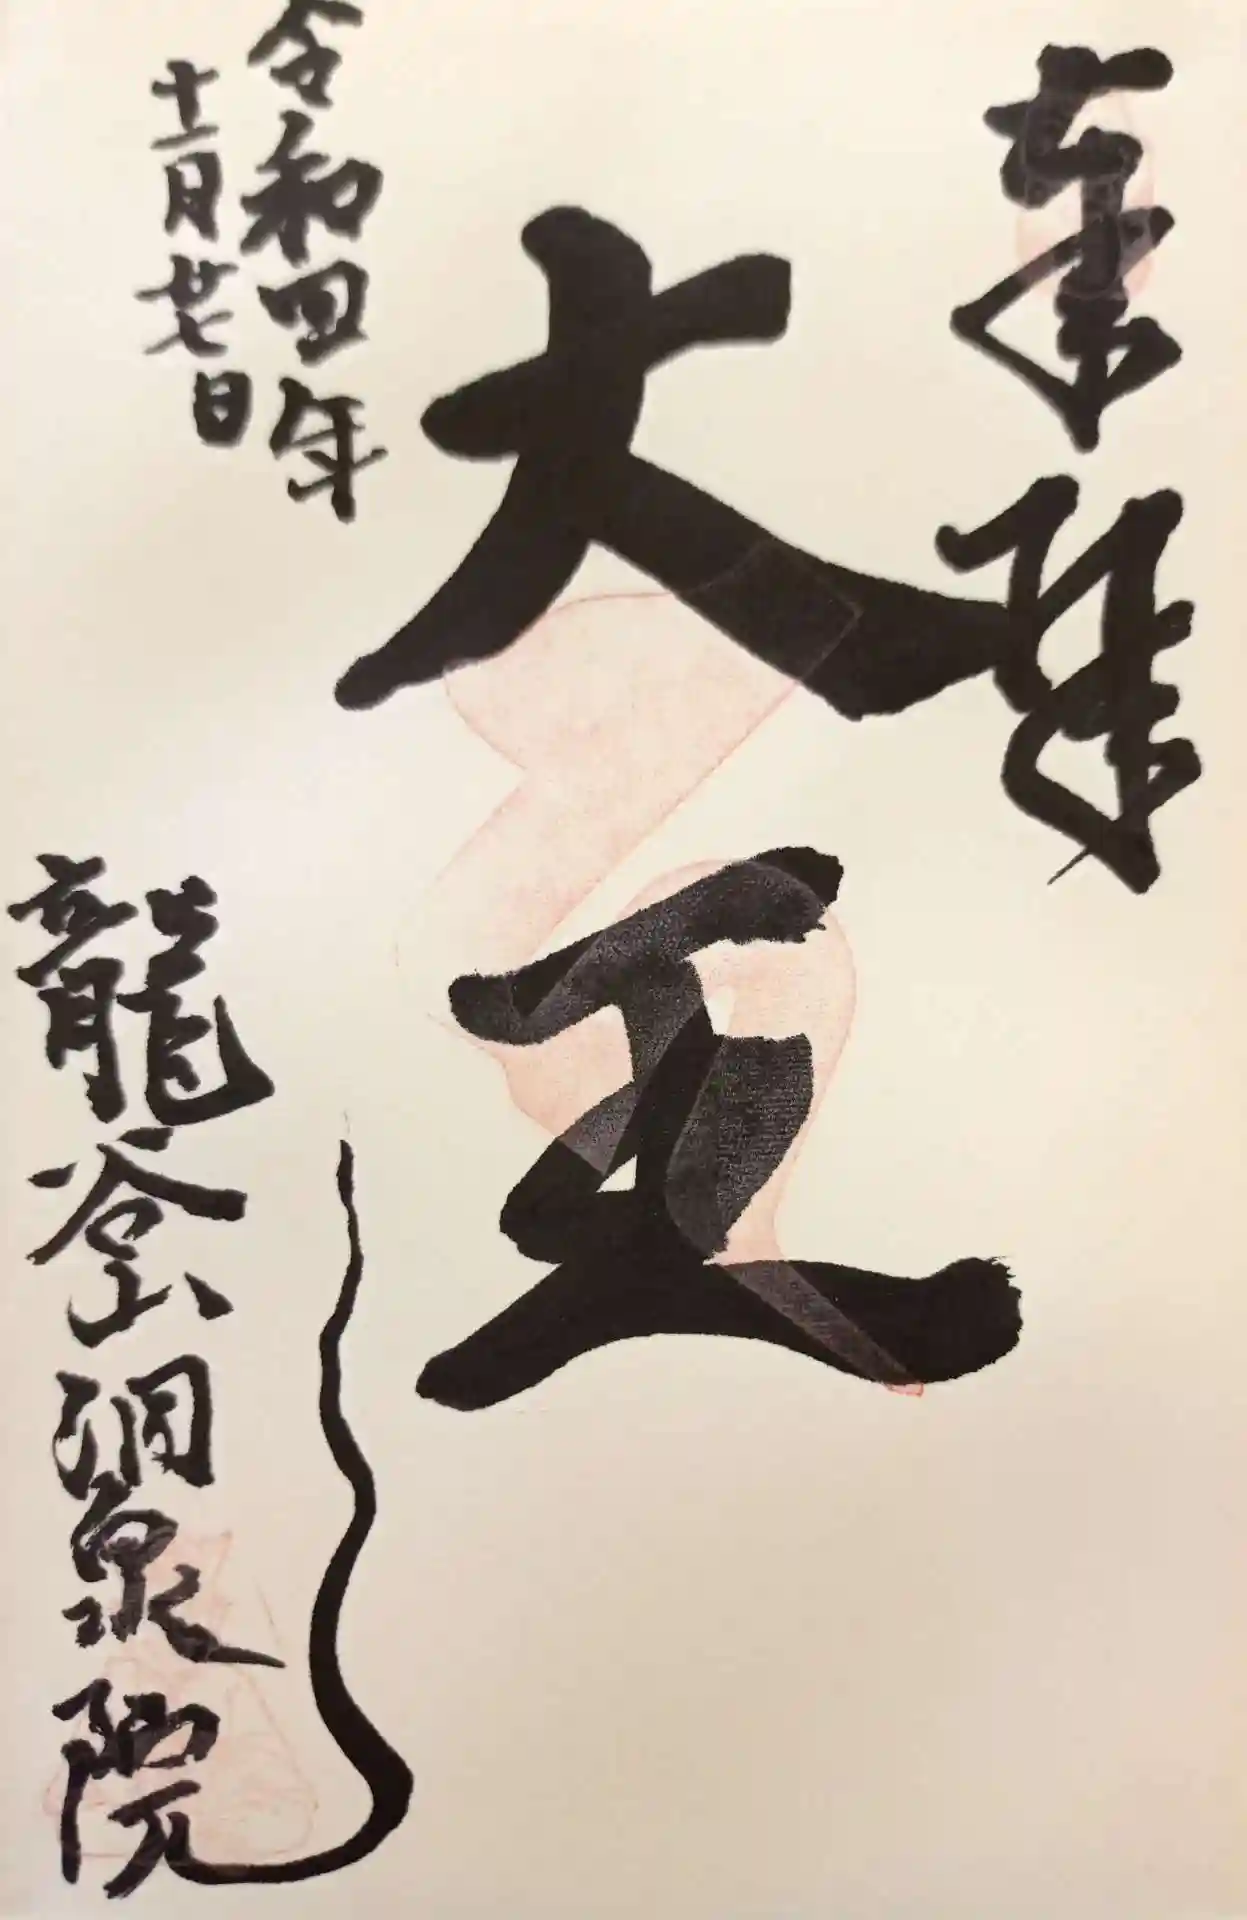 奉拝
大王
令和四年
十一月廿七日
龍谷山洞泉院